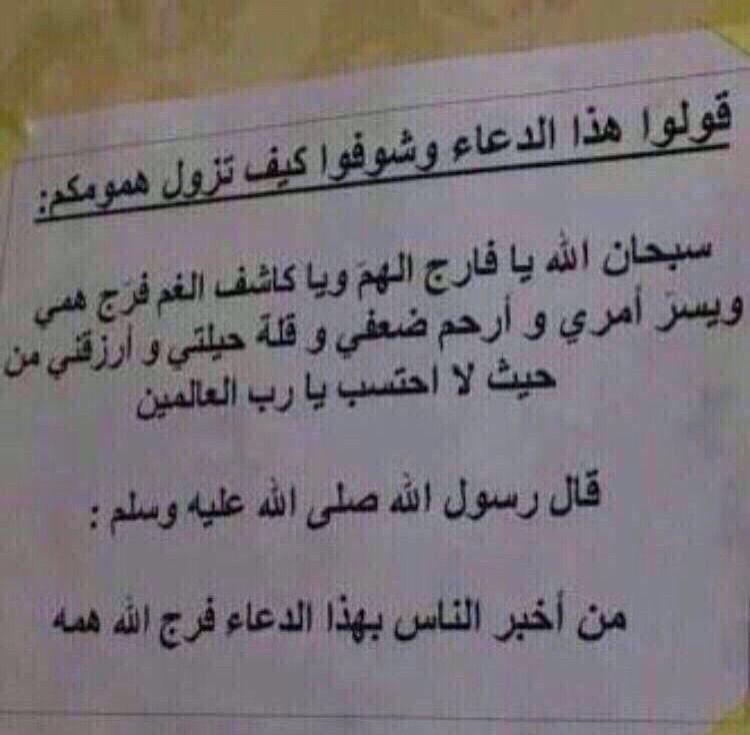 قولوا هذا الدعاء وشوفوا كيف تزول همومكم:
سبحان الله يا فارج الهمَ ويا كاشف الغم فرَج همي
ويسرَ أمري و أرحم ضعفي و قلة حيلتي و أرزقني من
حيث لا احتسب يا رب العالمين
قال رسول الله صلى الله عليه وسلم :
من أخبر الناس بهذا الدعاء فرج الله همه